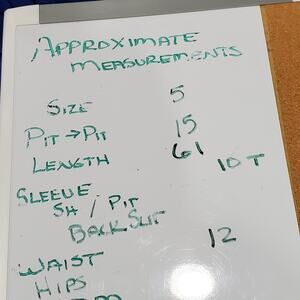 APPROXIMATE
MEASUREMENTS
SIZE 5
PIT → PIT 15
LENGTH 61
10 T
SLEEVE
SH / PIT
BACK SLIT 12
WAIST
HIPS